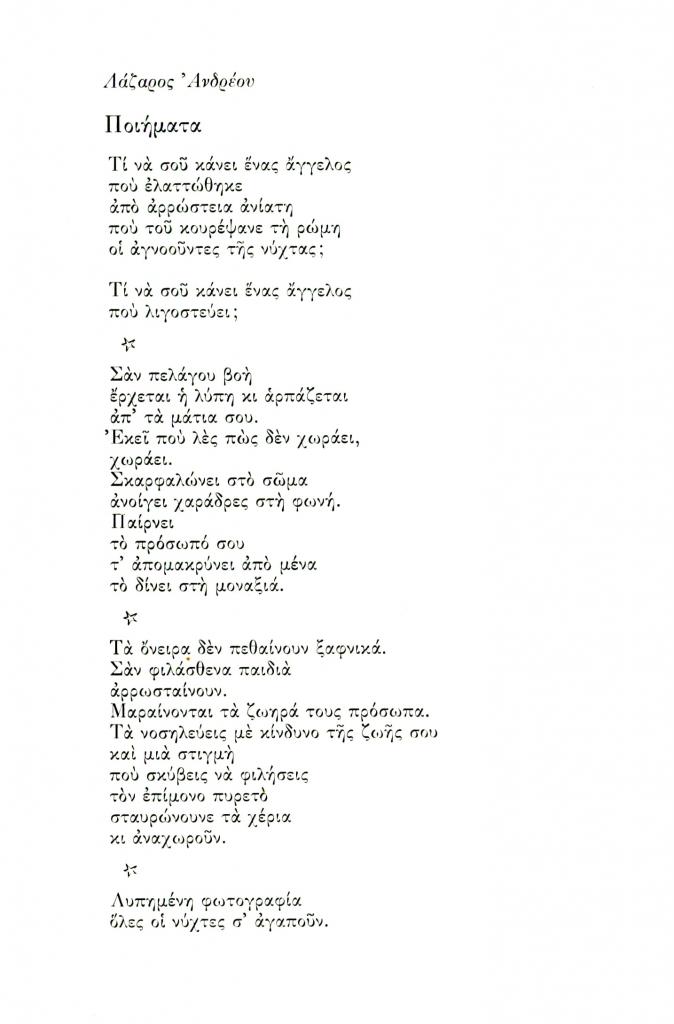 Λάζαρος Ἀνδρέου
Ποιήματα
Τί νὰ σοῦ κάνει ἕνας ἄγγελος
ποὺ ἐλαττώθηκε
ἀπὸ ἀρρώστεια ἀνίατη
ποὺ τοῦ κουρέψανε τὴ ρώμη
οἱ ἀγνοοῦντες τῆς νύχτας;
Τί νὰ σοῦ κάνει ἕνας ἄγγελος
ποὺ λιγοστεύει;
Σὰν πελάγου βοὴ
ἔρχεται ἡ λύπη κι ἁρπάζεται
ἀπ' τὰ μάτια σου.
Ἐκεῖ ποὺ λὲς πὼς δὲν χωράει,
χωράει.
Σκαρφαλώνει στὸ σῶμα
ἀνοίγει χαράδρες στὴ φωνή.
Παίρνει
τὸ πρόσωπό σου
τ' ἀπομακρύνει ἀπὸ μένα
τὸ δίνει στὴ μοναξιά.
Τὰ ὄνειρα δὲν πεθαίνουν ξαφνικά.
Σὰν φιλάσθενα παιδιὰ
ἀρρωσταίνουν.
Μαραίνονται τὰ ζωηρά τους πρόσωπα.
Τὰ νοσηλεύεις μὲ κίνδυνο τῆς ζωῆς σου
καὶ μιὰ στιγμὴ
ποὺ σκύβεις νὰ φιλήσεις
τὸν ἐπίμονο πυρετὸ
σταυρώνουνε τὰ χέρια
κι ἀναχωροῦν.
Λυπημένη φωτογραφία
ὅλες οἱ νύχτες σ' ἀγαποῦν.